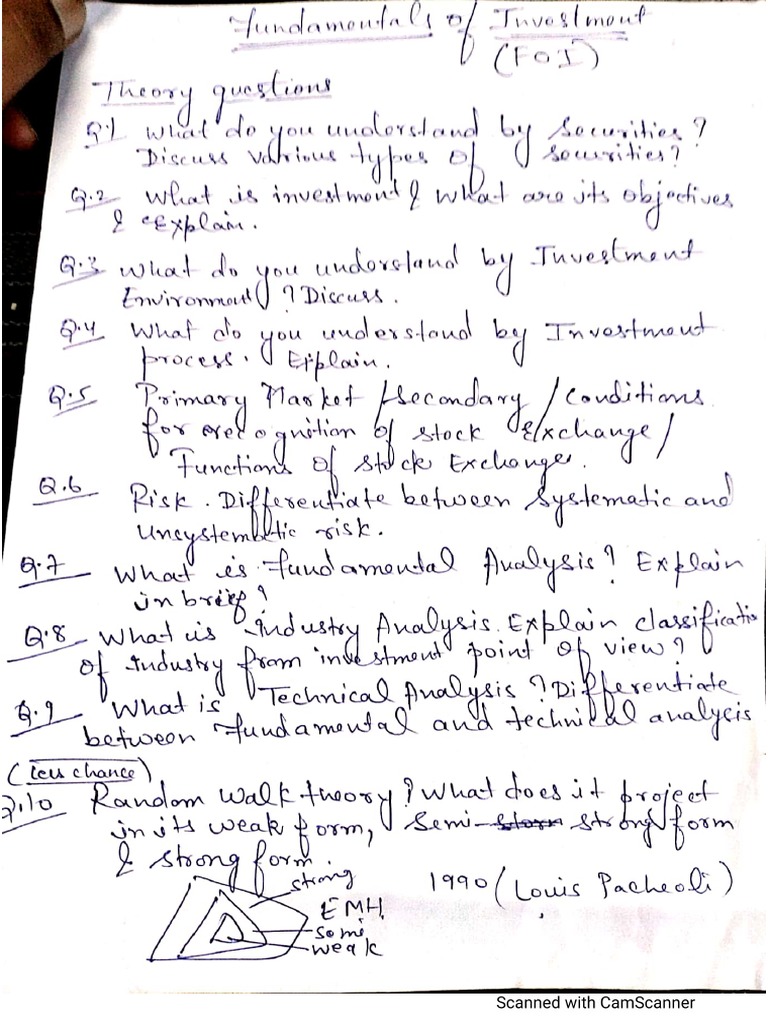 Fundamentals of Investment
(FOI)
Theory questions
Q.1 What do you understand by securities?
Discuss various types of securities?
Q.2 What is investment & what are its objectives
& Explain.
Q.3 What do you understand by Investment
Environment? Discuss.
Q.4 What do you understand by Investment
process. Explain.
Q.5 Primary Market / secondary / Conditions
for recognition of stock exchange /
Functions of stock Exchange.
Q.6 Risk. Differentiate between systematic and
Unsystematic risk.
Q.7 What is Fundamental Analysis? Explain
in brief?
Q.8 What is Industry Analysis. Explain classificatio
of Industry from investment point of view?
Q.9 What is Technical Analysis? Differentiate
between Fundamental and technical analysis
(less chance)
Q.10 Random walk theory? What does it project
in its weak form, semi- strong form
& strong form.
strong
1990 (Louis Pacheoli)
EMH
semi
weak
Scanned with CamScanner